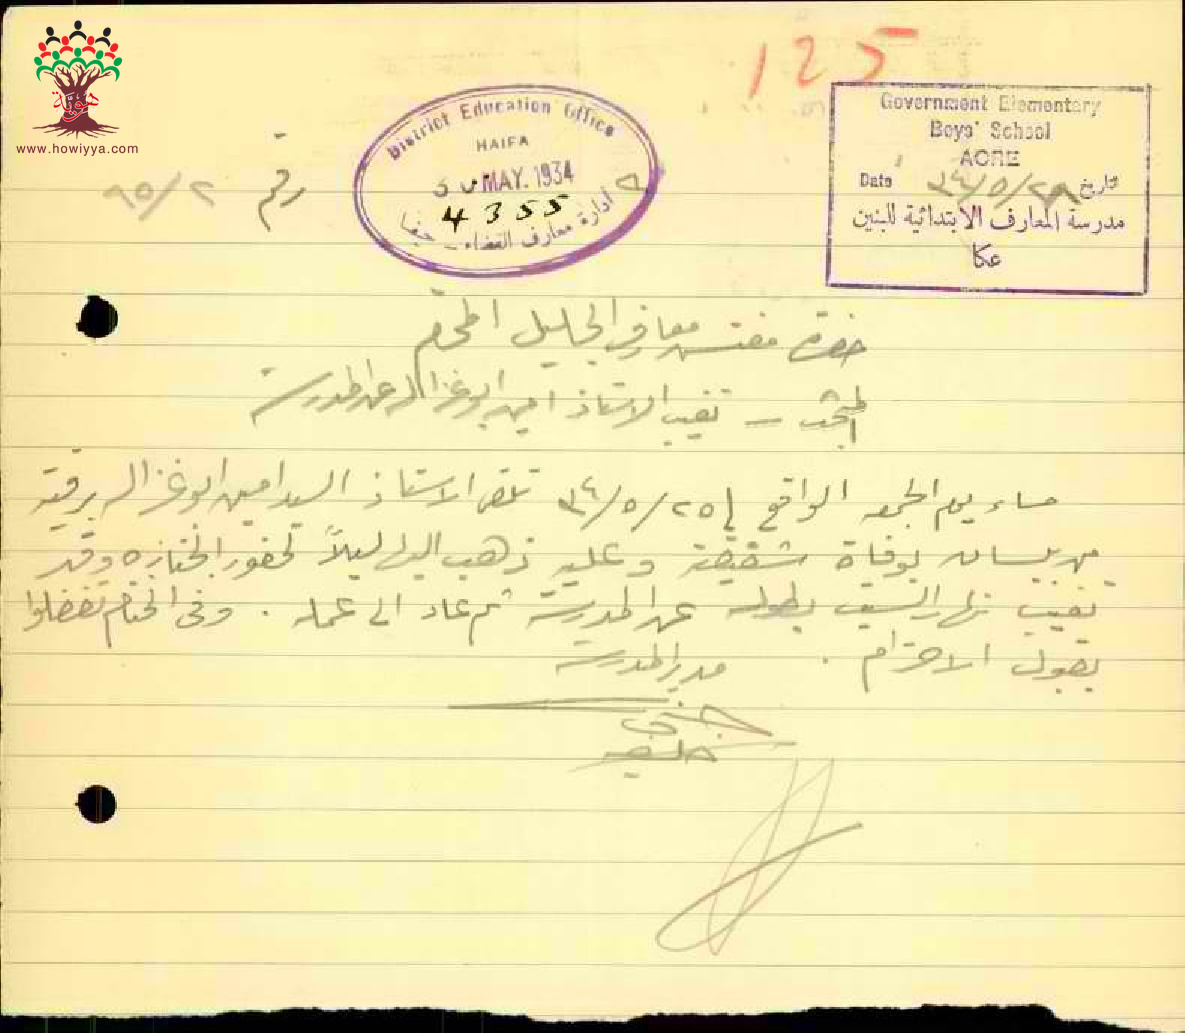 125
هوية
www.howiyya.com
District Education Office
HAIFA
30 MAY. 1934
4355
ادارة معارف القضاء - حيفا
Government Elementary
Boys' School
ACRE
Date ٣٤/٥/٢٨ تاريخ
مدرسة المعارف الابتدائية للبنين
عكا
رقم ٩٥/٢
حضرة مفتش معارف الجليل المحترم
المبحث - تغيب الاستاذ امين ابو غزاله عن المدرسة
مساء يوم الجمعه الواقع في ٣٤/٥/٢٥ تلقى الاستاذ السيد امين ابو غزاله برقية
من بيسان بوفاة شقيقته وعليه ذهب اليها ليلاً لحضور الجنازه وقد
تغيب نهار السبت بطوله عن المدرسة ثم عاد الى عمله . وفي الختام تفضلوا
بقبول الاحترام .
مدير المدرسة
خليفه